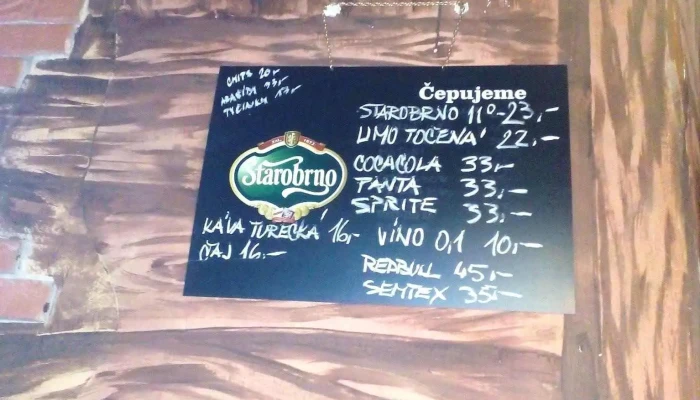 CHIPS 20,-
ARAŠÍDY 33,-
TYČINKY 13,-
Čepujeme
STAROBRNO 11° - 23,-
LIMO TOČENÁ 22,-
COCACOLA 33,-
FANTA 33,-
SPRITE 33,-
Starobrno
KÁVA TURECKÁ 16,-
ČAJ 16,-
VÍNO 0,1 10,-
REDBULL 45,-
SEMTEX 35,-